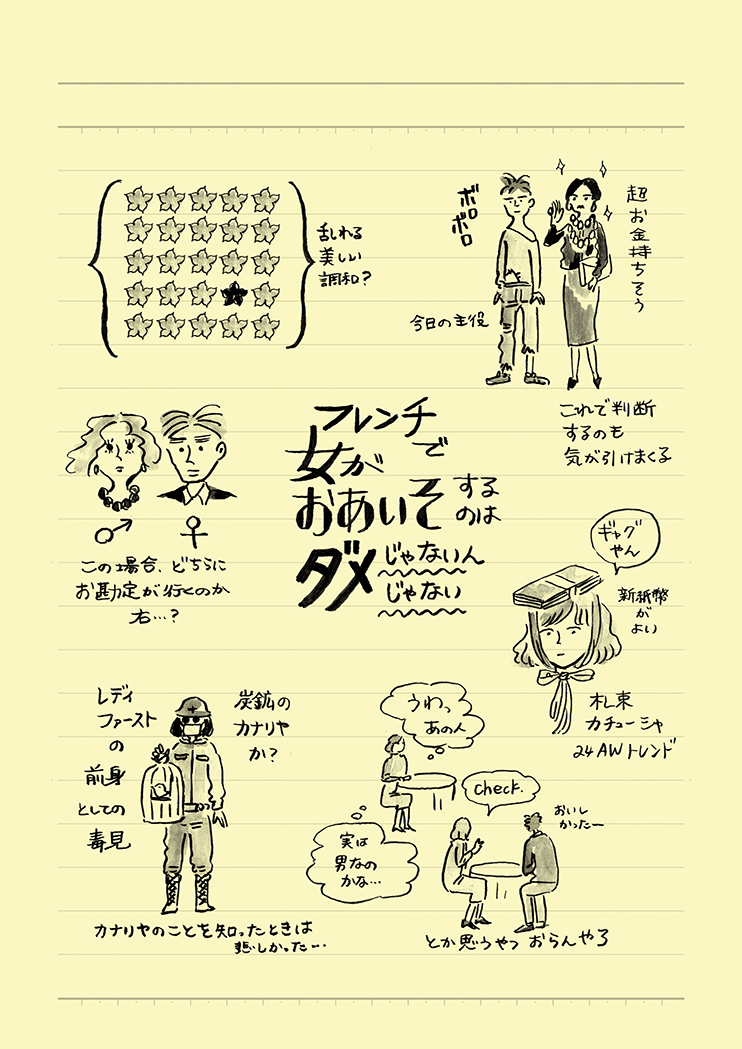 乱れる
美しい
調和?
ボロボロ
今日の主役
超お金持ちそう
これで判断
するのも
気が引けまくる
フレンチで
女が
おあいそするのは
ダメじゃないん
じゃない
♂ ♀
この場合、どちらに
お勘定が行くのか
右…?
ギャグ
やん
新紙幣
が
よい
札束
カチューシャ
24AWトレンド
レディ
ファースト
の
前身
としての
毒見
炭鉱の
カナリヤ
か?
カナリヤのことを知ったときは
悲しかった…
うわっ
あの人
check.
おいし
かったー
実は
男なの
かな…
とか思うやつ おらんやろ